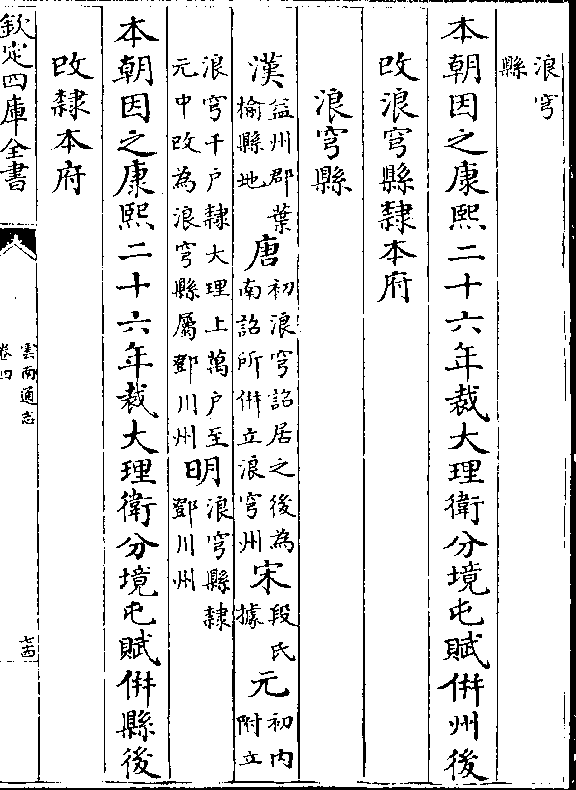 浪穹
縣
本朝因之康熙二十六年裁大理衛分境屯賦併州後
改浪穹縣隸本府
浪穹縣
漢益州郡葉榆縣地唐初浪穹詔居之後為南詔所併立浪穹州宋段氏據元初内附立
浪穹千户隸大理上萬户至元中改為浪穹縣屬鄧川州明浪穹縣隸鄧川州
本朝因之康熙二十六年裁大理衛分境屯賦併縣後
改隸本府
欽定四庫全書
雲南通志
卷四
七十四